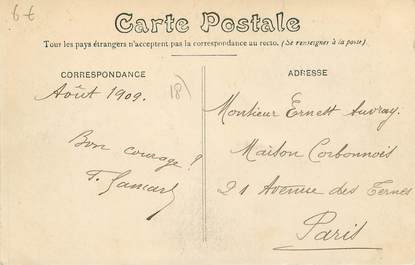 6€
Carte Postale
Tour les pays étrangers n'acceptent pas la correspondance au recto. (Se renseigner à la poste).
CORRESPONDANCE
Août 1909.
18
Bon courage!
ADRESSE
Monsieur Ernest Auvray.
Maison Corbonnois
21 Avenue des Ternes
Paris